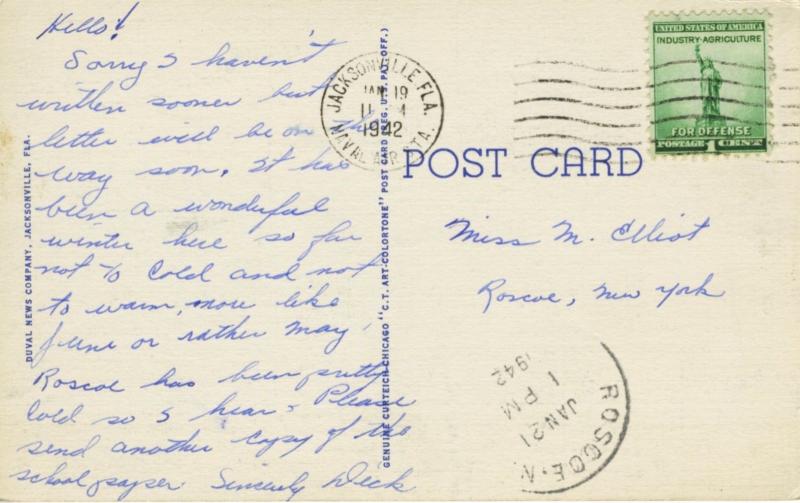 Hello!
Sorry I haven't
written sooner but
letter will be on the
way soon. It has
been a wonderful
winter here so far
not to cold and not
to warm, more like
June or rather May.
Roscoe has been pretty
cold so I hear. Please
send another copy of the
school paper Sincerely Dick
DUVAL NEWS COMPANY, JACKSONVILLE, FLA.
GENUINE CURTEICH-CHICAGO "C.T. ART-COLORTONE" POST CARD (REG. U.S. PAT. OFF.)
JACKSONVILLE FLA.
JAN 19
1942
NAVAL AIR STA.
UNITED STATES OF AMERICA
INDUSTRY-AGRICULTURE
FOR DEFENSE
POSTAGE 1 CENT
POST CARD
Miss M. Elliot
Roscoe, New York
ROSCOE N
JAN 21
1 PM
1942